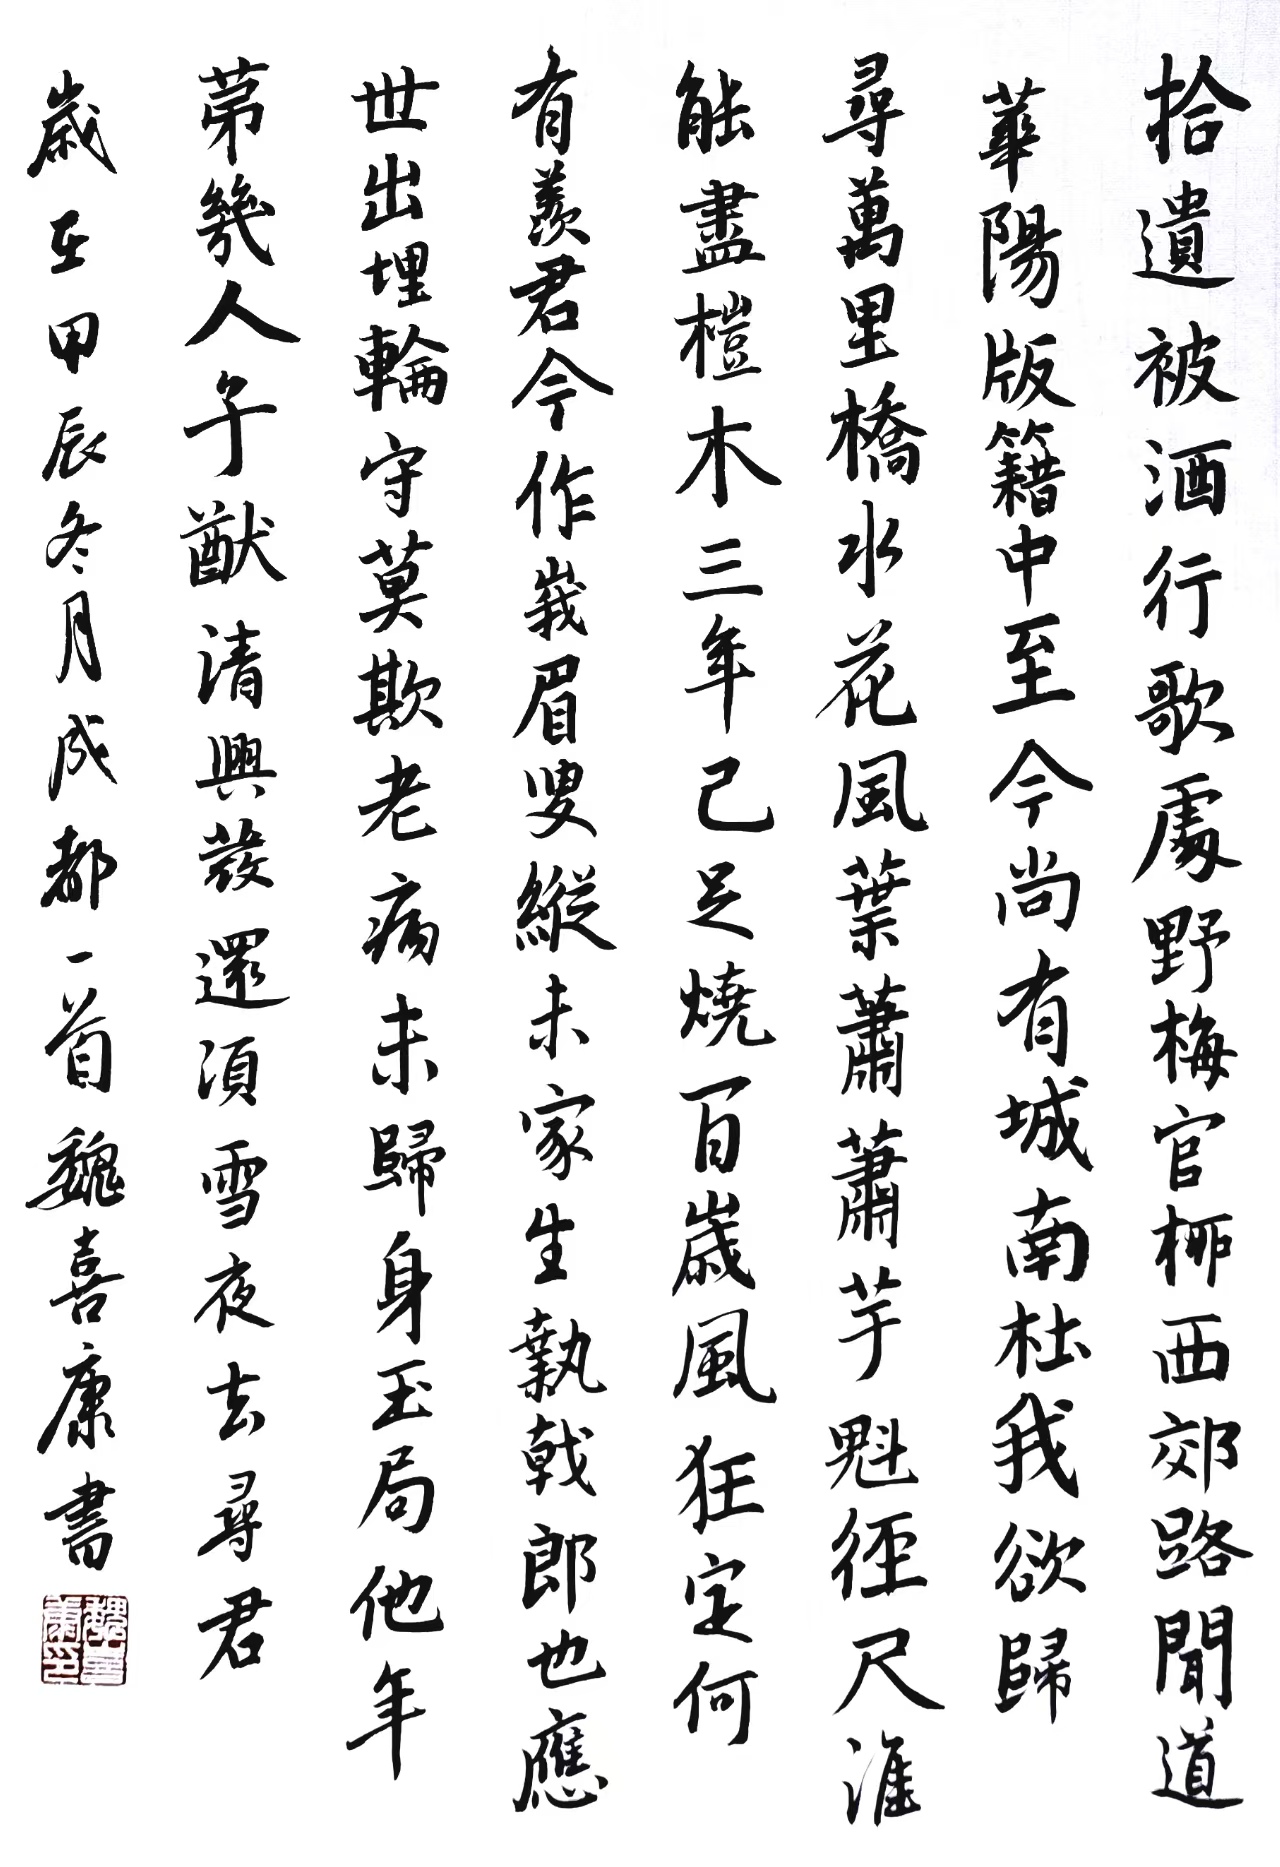 拾遺被酒行歌處野梅官柳西郊路聞道
華陽版籍中至今尚有城南杜我欲歸
尋萬里橋水花風葉蕭蕭芋魁徑尺誰
能盡榿木三年已足燒百歲風狂定何
有羨君今作峩眉叟縱未家生執戟郎也應
世出埋輪守莫欺老病未歸身玉局他年
第幾人子猷清興發還須雪夜去尋君
歲在甲辰冬月成都一首魏喜康書
魏喜康印